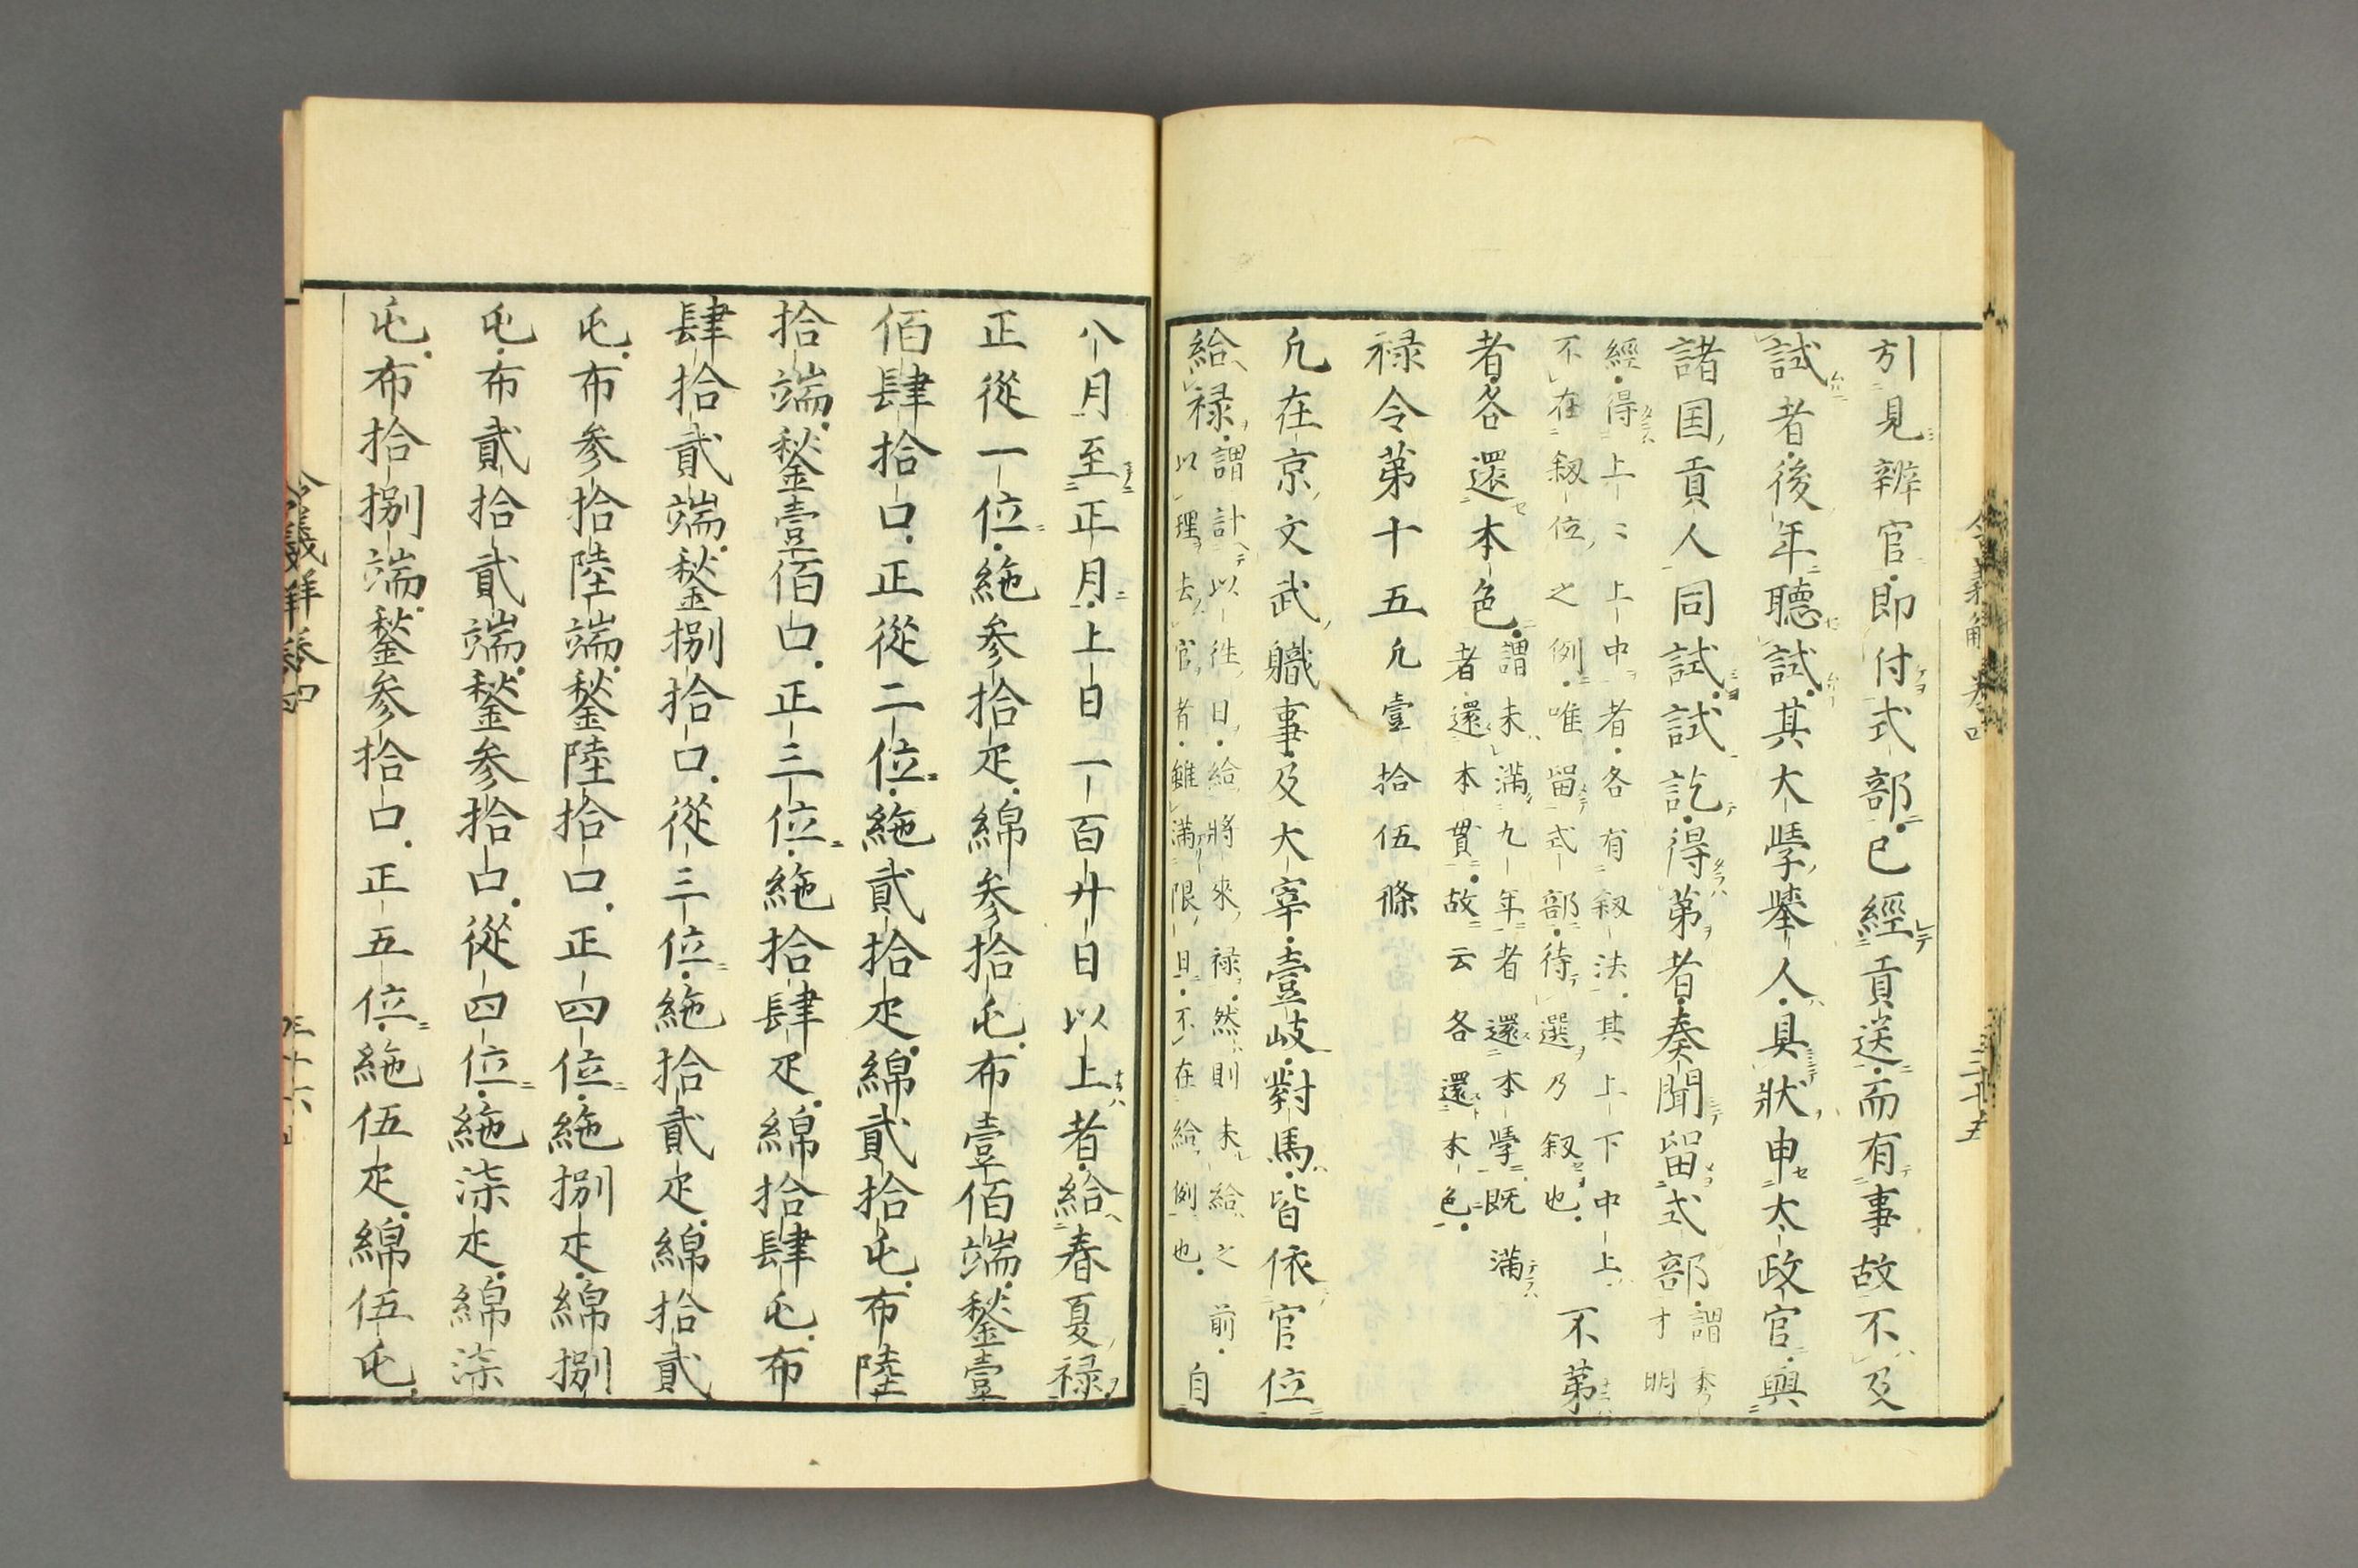 引見辨官即付式部已經貢送而有事故不及
試者後年聽試其大學擧人具狀申太政官與
諸国貢人同試試訖得第者奏聞留式部謂秀
才明
經得上々上中者各有叙法其上下中上
不在叙位之例唯留式部待選乃叙也
不第
者各還本色謂未滿九年者還本學既滿
者還本貫故云各還本色
禄令第十五凢壹拾伍條
凢在京文武職事及大宰壹岐對馬皆依官位
給禄謂計以徃日給將來禄然則未給之前
以理去官者雖滿限且不在給例也
自
八月至正月上日一百廾日以上者給春夏禄
正從一位絁参拾疋綿参拾屯布壹佰端鍫壹
佰肆拾口正從二位絁貳拾疋綿貳拾屯布陸
拾端鍫壹佰口正三位絁拾肆疋綿拾肆屯布
肆拾貳端鍫捌拾口從三位絁拾貳疋綿拾貳
屯布参拾陸端鍫陸拾口正四位絁捌疋綿捌
屯布貳拾貳端鍫参拾口從四位絁柒疋綿柒
屯布拾捌端鍫参拾口正五位絁伍疋綿伍屯
令義解卷四
三十六